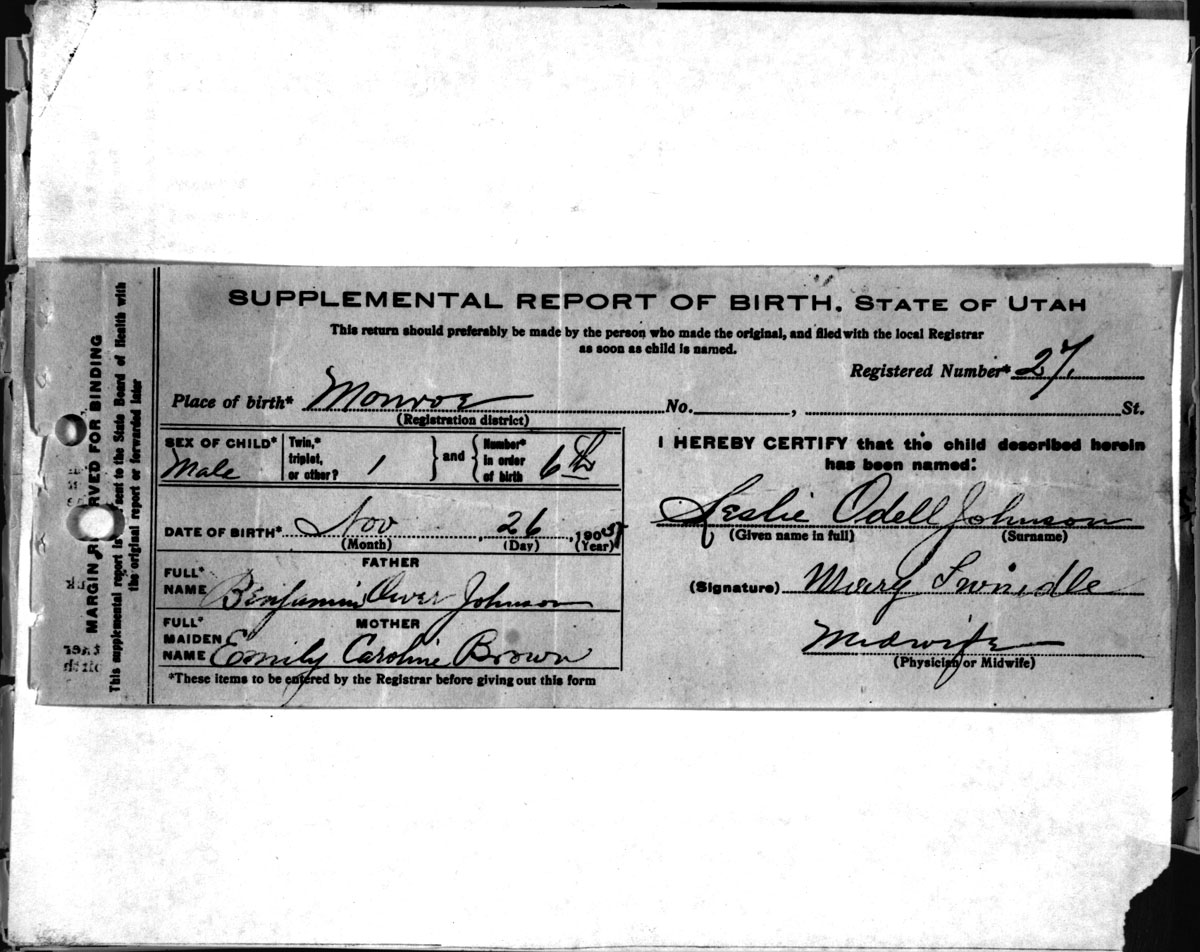 SUPPLEMENTAL REPORT OF BIRTH, STATE OF UTAH
This return should preferably be made by the person who made the original, and filed with the local Registrar
as soon as child is named.
Registered Number* 27.
Place of birth* Monroe No. , St.
(Registration district)
SEX OF CHILD* Male
Twin,* triplet, or other? 1 and Number* in order of birth 6th
DATE OF BIRTH* Nov 26, 1905
(Month) (Day) (Year)
FATHER
FULL* NAME Benjamin Johnson
MOTHER
FULL* MAIDEN NAME Emily Caroline Brown
*These items to be entered by the Registrar before giving out this form
I HEREBY CERTIFY that the child described herein
has been named:
Leslie Odell Johnson
(Given name in full) (Surname)
(Signature) Mary Swindle
Midwife
(Physician or Midwife)
MARGIN RVED FOR BINDING
This supplemental report is sent to the State Board of Health with
the original report or forwarded later